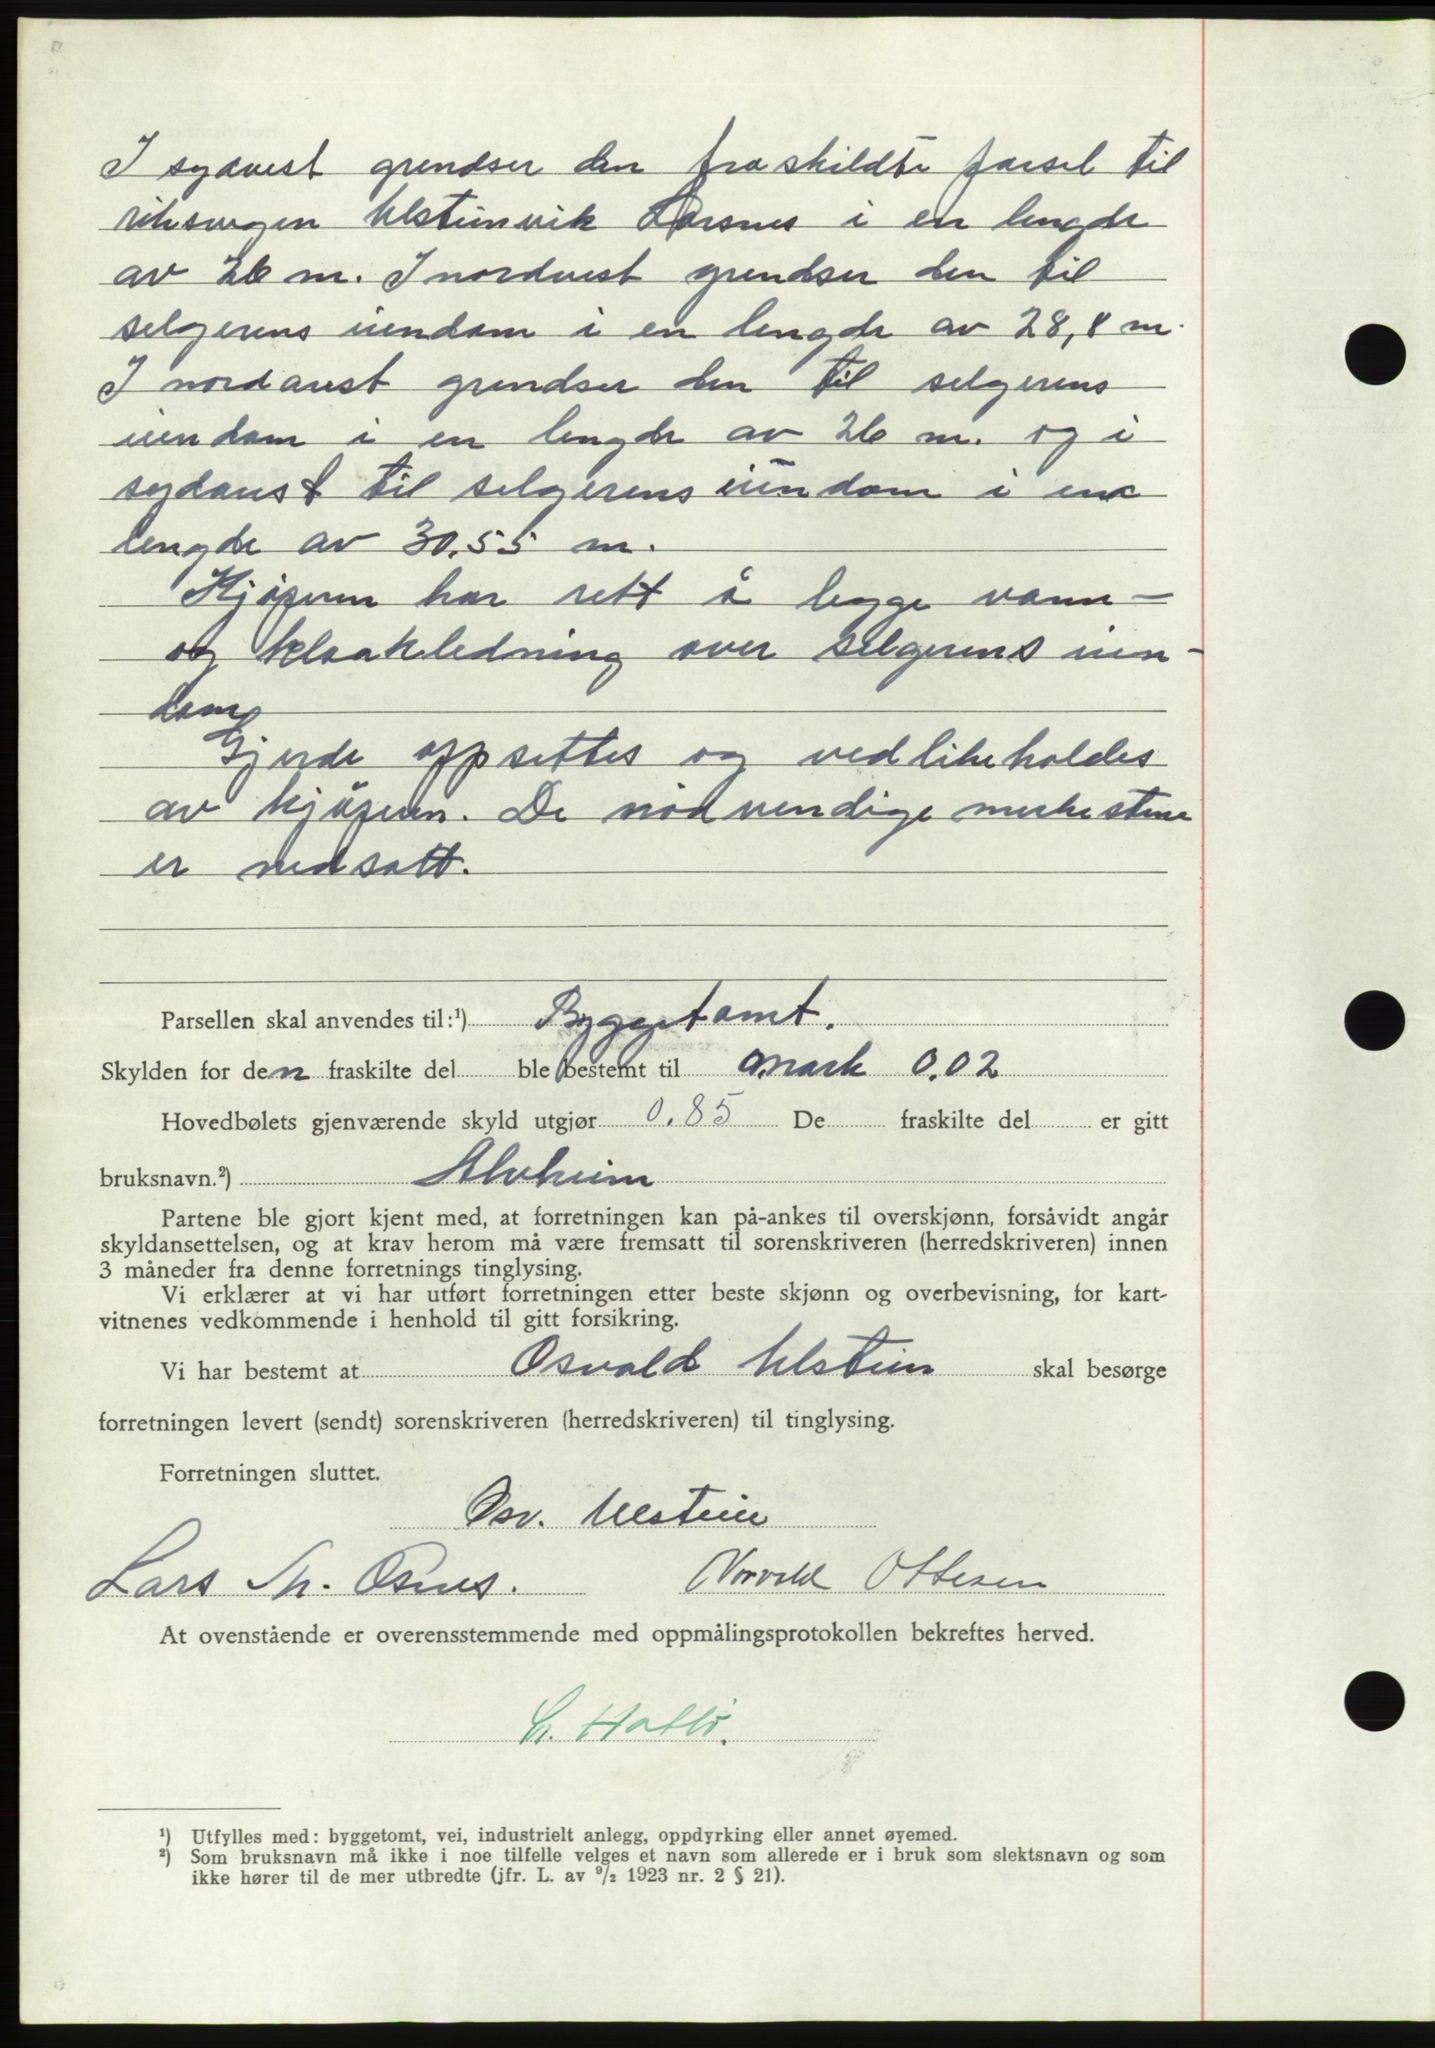 I sydvest grendser den fraskildte parsel til
riksvegen Ulsteinvik Larsnes i en lengde
av 26 m. I nordvest grendser den til
selgerens eiendom i en lengde av 28,8 m.
I nordaust grendser den til selgerens
eiendom i en lengde av 26 m. og i
sydaust til selgerens eiendom i en
lengde av 30.55 m.
Kjöperen har rett å legge vann-
og kloakledning over selgerens eien-
dom
Gjerde oppsettes og vedlikeholdes
av kjöperen. De nödvendige merkestene
er nedsatt.
Parsellen skal anvendes til:¹) Byggetomt.
Skylden for den fraskilte del ble bestemt til mark 0.02
Hovedbølets gjenværende skyld utgjør 0.85 De fraskilte del er gitt
bruksnavn.²) Alvheim
Partene ble gjort kjent med, at forretningen kan på-ankes til overskjønn, forsåvidt angår
skyldansettelsen, og at krav herom må være fremsatt til sorenskriveren (herredskriveren) innen
3 måneder fra denne forretnings tinglysing.
Vi erklærer at vi har utført forretningen etter beste skjønn og overbevisning, for kart-
vitnenes vedkommende i henhold til gitt forsikring.
Vi har bestemt at Osvald Ulstein skal besørge
forretningen levert (sendt) sorenskriveren (herredskriveren) til tinglysing.
Forretningen sluttet.
Osv. Ulstein
Lars Osnes. Ottesen
At ovenstående er overensstemmende med oppmålingsprotokollen bekreftes herved.
Hatlö.
¹) Utfylles med: byggetomt, vei, industrielt anlegg, oppdyrking eller annet øyemed.
²) Som bruksnavn må ikke i noe tilfelle velges et navn som allerede er i bruk som slektsnavn og som
ikke hører til de mer utbredte (jfr. L. av ⁹/₂ 1923 nr. 2 § 21).